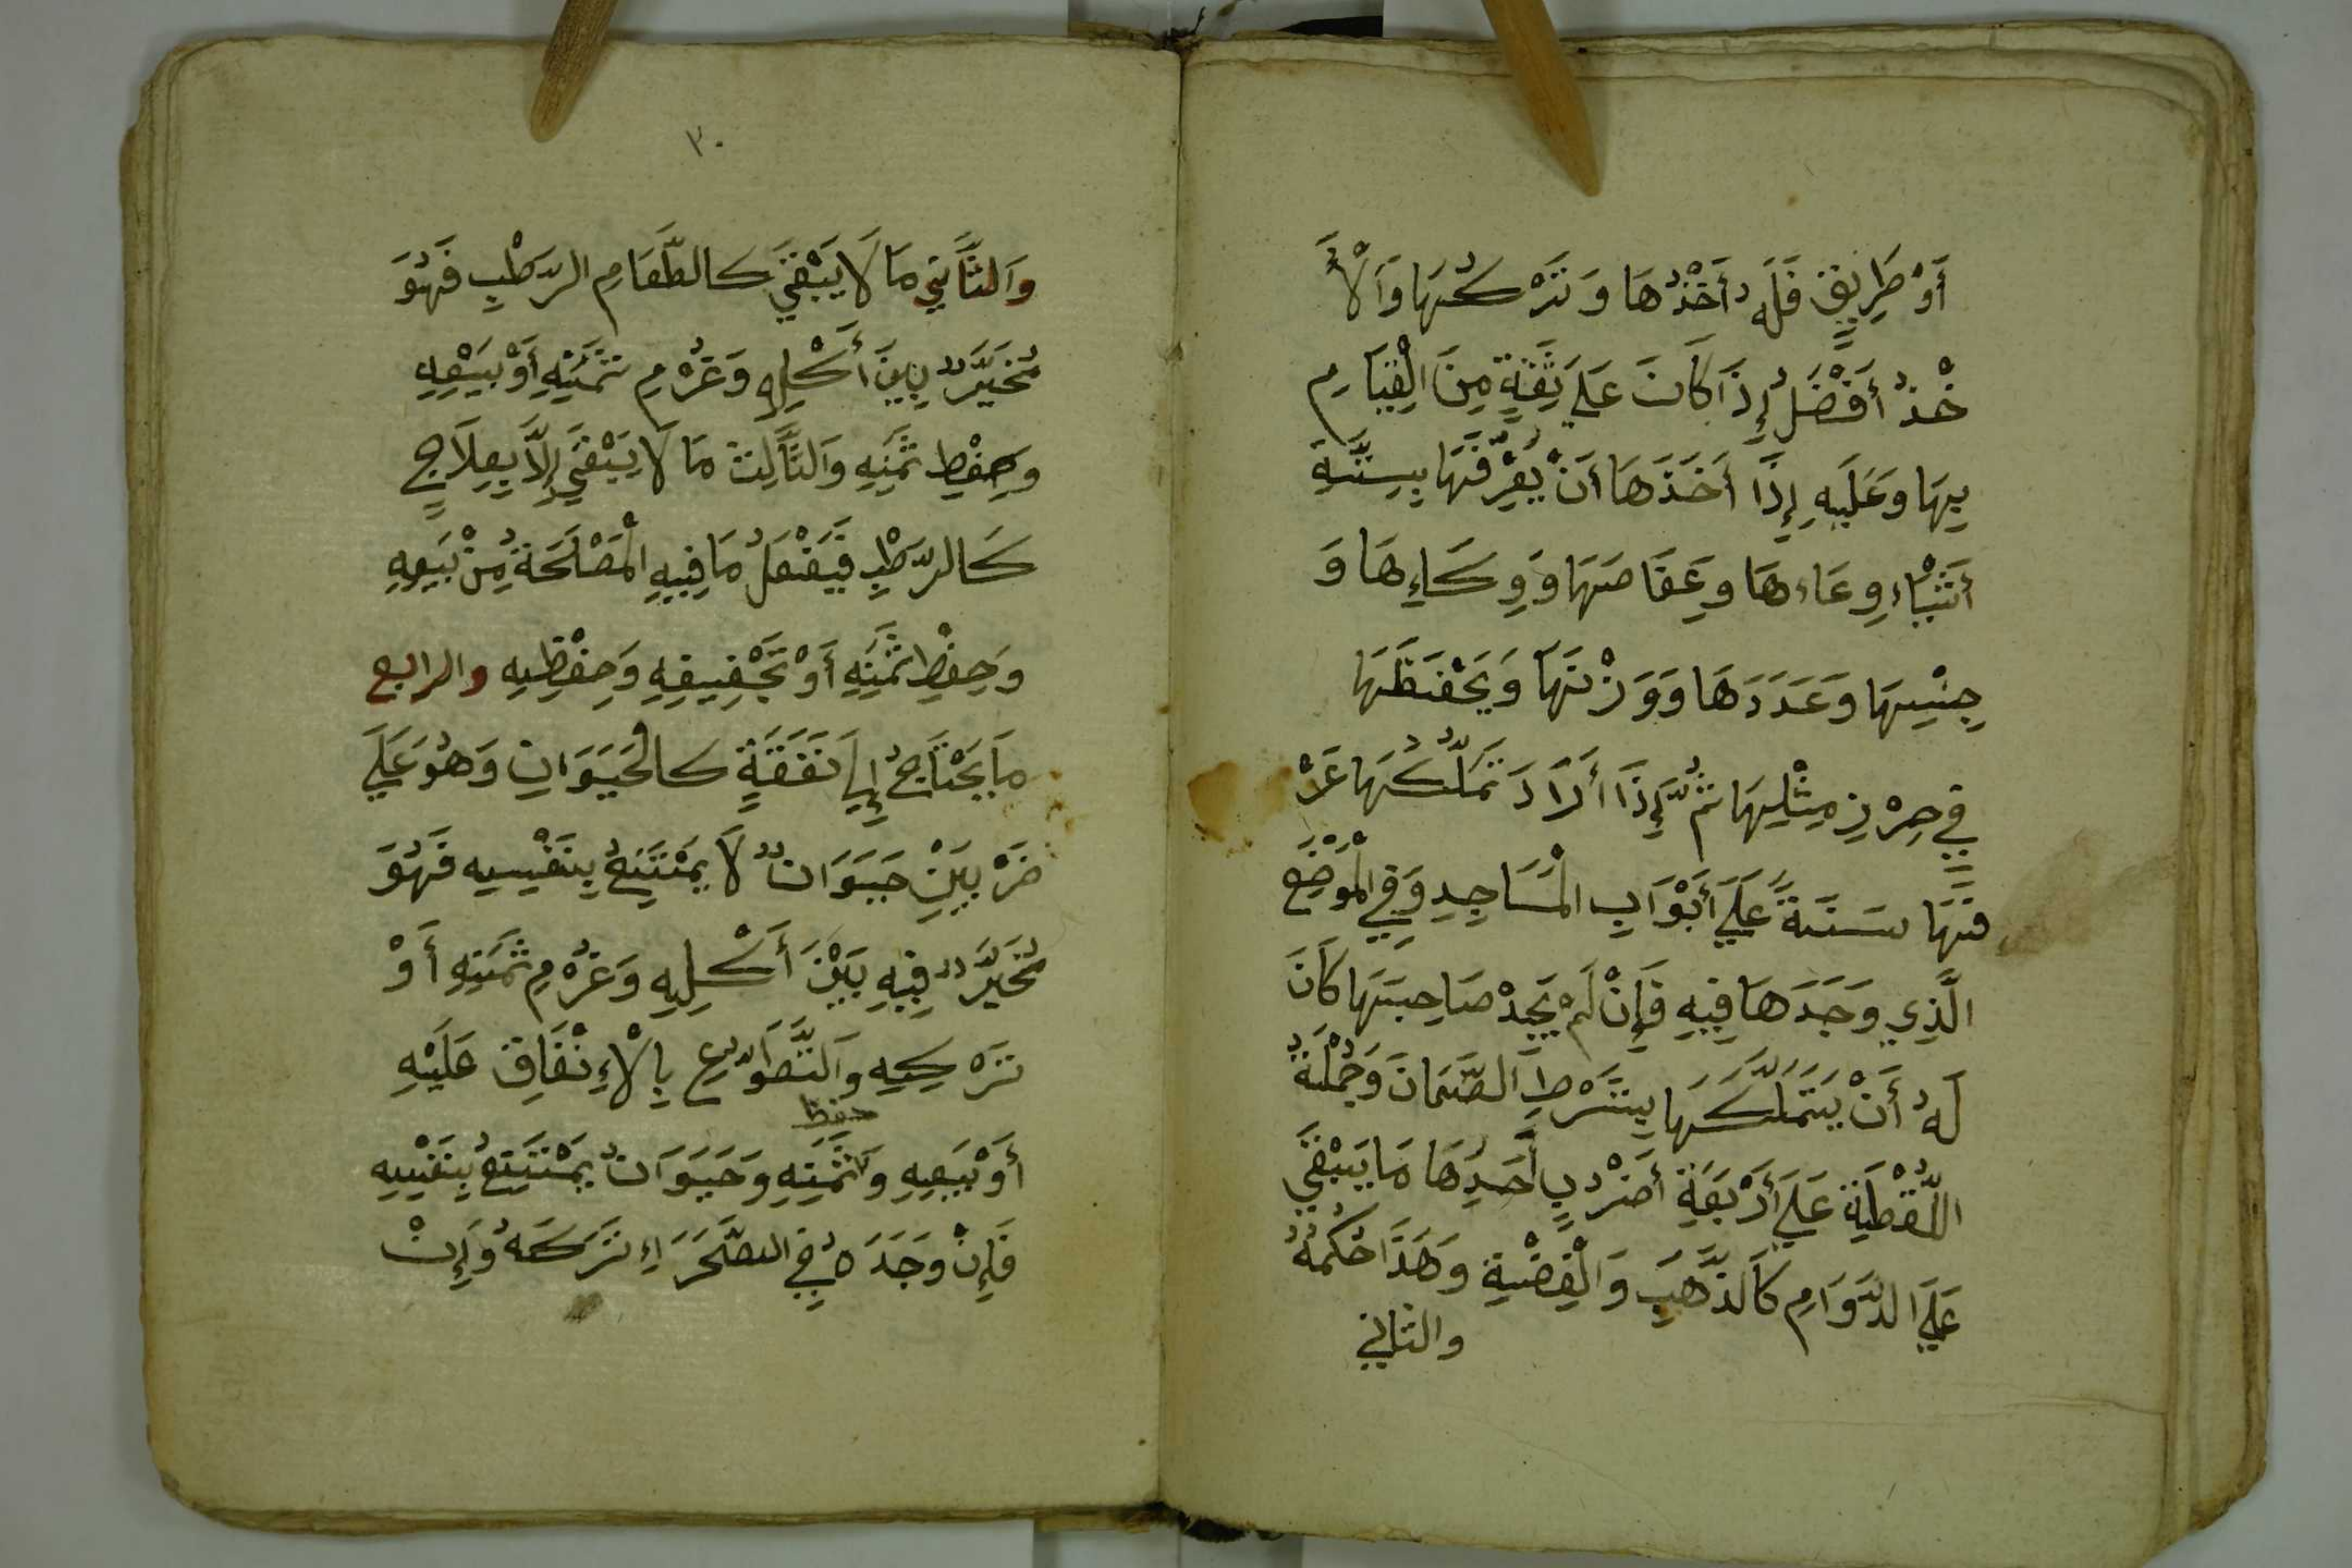 أَوْ طَرِيقٍ فَلَهُ أَخْذُهَا وَتَرْكُهَا وَالْأَ
خْذُ أَفْضَلُ إِذَا كَانَ عَلَي ثِقَةٍ مِنَ الْقِيَامِ
بِهَا وَعَلَيْهِ إِذَا أَخَذَهَا أَنْ يُعَرِّفَهَا بِسِتَّةِ
أَشْيَاءِ وِعَاءهَا وعِفَاصَهَا وَوِكَاءِهَا وَ
جِنْسِهَا وَعَدَدَهَا وَوَزْنَهَا وَيَحْفَظَهَا
فِي حِرْزِ مِثْلِهَا ثُمَّ إِذَا أَرَادَ تَمَلُّكُهَا عَرَّ
فَهَا سَنَةً عَلَي أَبْوَابِ الْمَسَاجِدِ وَفِي الْمَوْضِعِ
الَّذِي وَجَدَهَا فِيهِ فَإِنْ لَمْ يَجِدْ صَاحِبَهَا كَانَ
لَهُ أَنْ يَتَمَلَّكَهَا بِشَرْطِ الضَّمَانَ وَجُمْلَةُ
اللُّقْطَةِ عَلَي أَرْبَعَةِ أَضْرُبٍ أَحَدِهَا مَا يَبْقَي
عَلَي الدَّوَامِ كَالذَّهَبِ وَالْفِضَّةِ وَهَذَا حُكْمُهُ
والثاني
٣٠
وَالثَّانِي مَا لَا يَبْقَي كَالطَّعَامِ الرَّطْبِ فَهُوَ
مُخَيَّرٌ بَيْنَ أَكْلِهِ وَغُرْمِ ثَمَنِهِ أَوْ بَيْعِهِ
وَحِفْظِ ثَمَنِهِ وَالثَّالِثُ مَا لَا يَبْقَي إِلَّا بِعِلَاجٍ
كَالرَّطْبِ فَيَفْعَلُ مَا فِيهِ الْمَصْلَحَةُ مِنْ بَيْعِهِ
وَحِفْظِ ثَمَنِهِ أَوْ تَجْفِيفِهِ وَحِفْظِهِ والرابع
مَا يَحْتَاجُ إِلَي نَفَقَةٍ كَالْحَيَوَانِ وَهُوَ عَلَي
ضَرْبَيْنِ حَيَوَانٌ لَا يَمْتَنِعُ بِنَفْسِهِ فَهُوَ
مُخَيَّرٌ فِيهِ بَيْنَ أَكْلِهِ وَغُرْمِ ثَمَنِهِ أَوْ
تَرْكِهِ وَالتَّطَوُّعِ بِالْإِنْفَاقِ عَلَيْهِ
حفظ
أَوْ بَيْعِهِ وَثَمَنِهِ وَحَيَوَانٌ يَمْتَنِعُ بِنَفْسِهِ
فَإِنْ وَجَدَهُ فِي الصَّحَرَاءِ تَرَكَهُ وَإِنْ